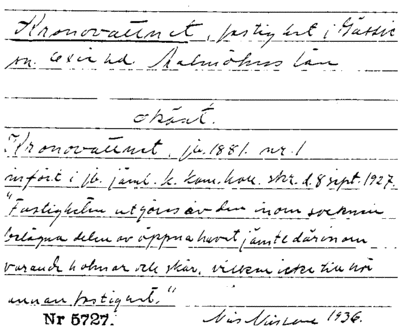 Kronovattnet, fastighet i Gässie
sn. Oxie hd. Malmöhus län
okänt.
Kronovattnet, jb. 1881. nr. 1
infört i jb. jäml. k. kam. koll. skr. d. 8 sept. 1927.
"Fastigheten utgöres av den inom socknen
belägna delen av öppna havet jämte därinom
varande holmar och skär, vilken icke tillhör
annan fastighet."
Nr 5727. 1936.